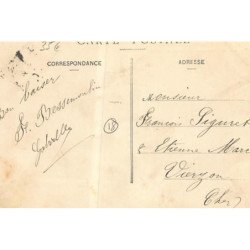 CARTE POSTALE
CORRESPONDANCE
ADRESSE
Bon baiser
Bessemoulin
Gabrielle
Monsieur
François Piguet
Etienne Marc
Vierzon
Cher